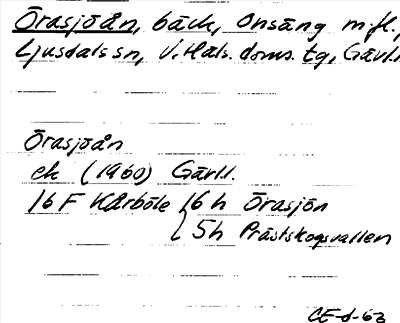 Örasjöån, bäck, Onsäng m.fl.,
Ljusdals sn, V. Häls. doms. tg, Gävl.
Örasjöån
ek (1960) Gävl.
16 F Kårböle 6h Örasjön
5h Prästskogsvallen
CE-d-63